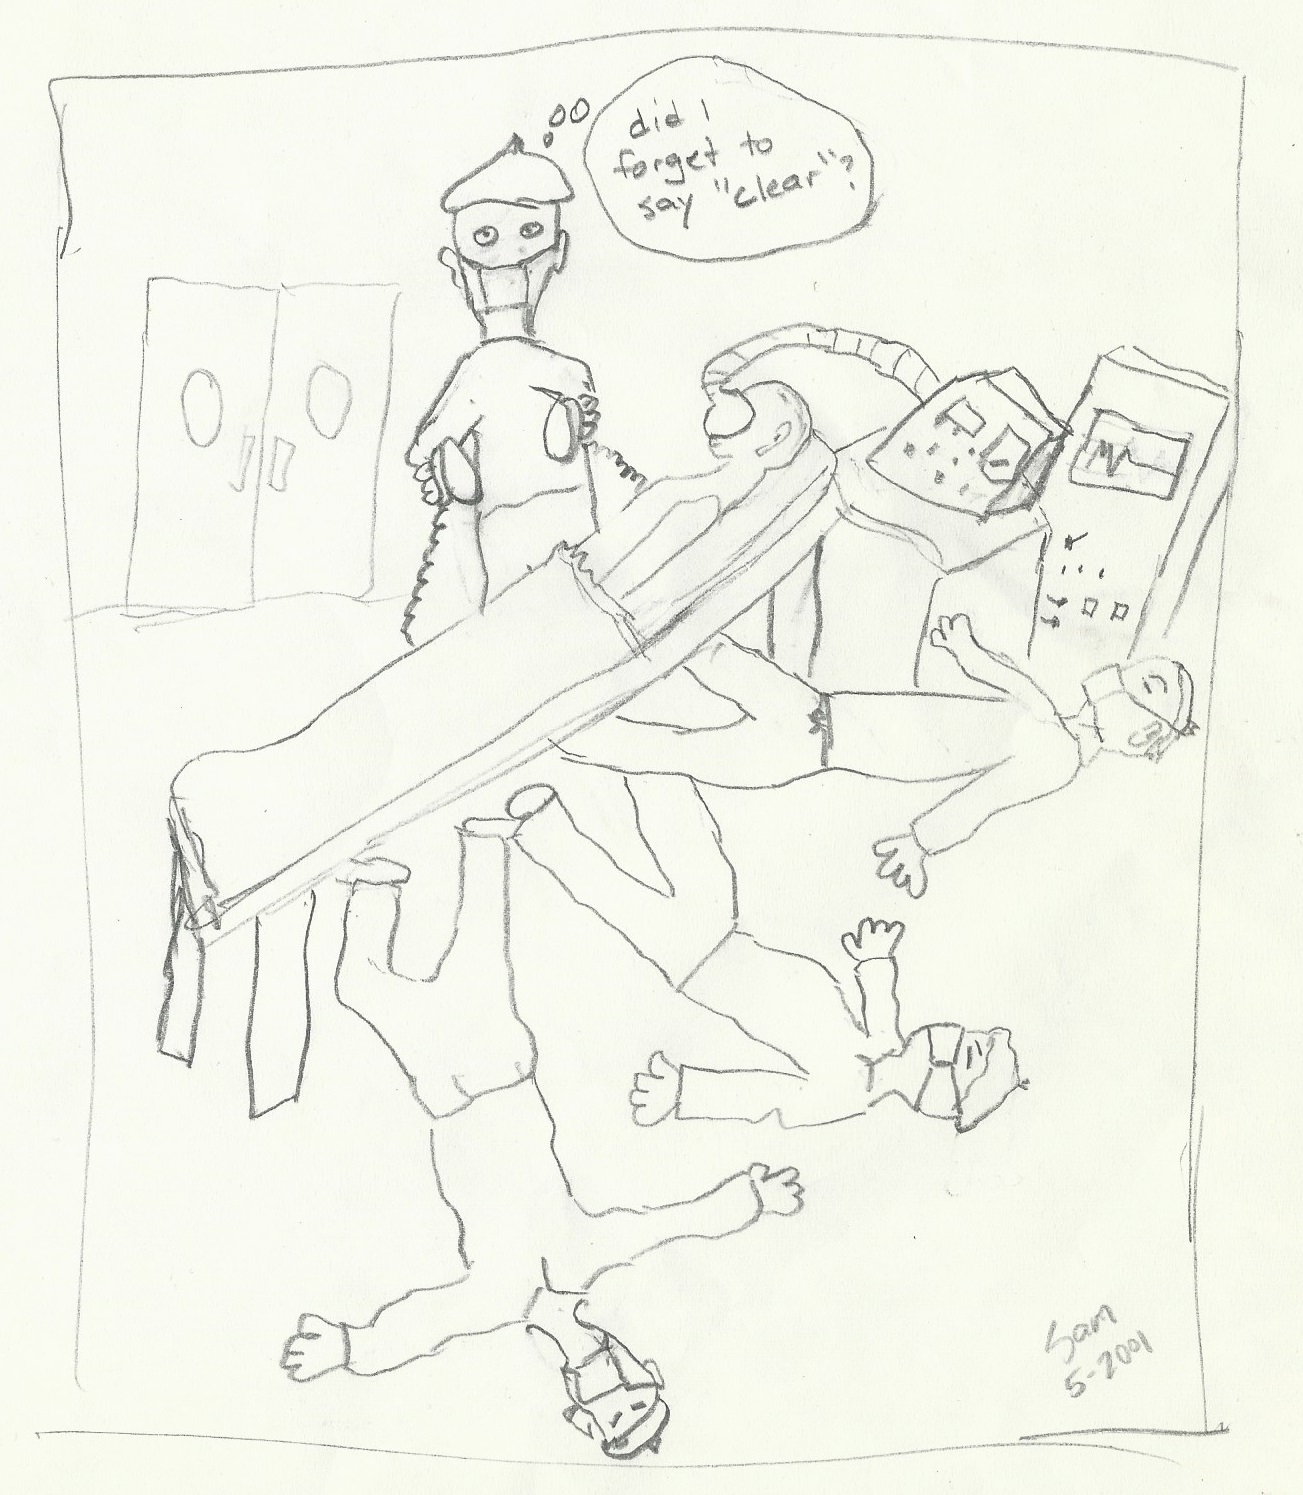 did I
forget to
say "clear"?
Sam
5-2001